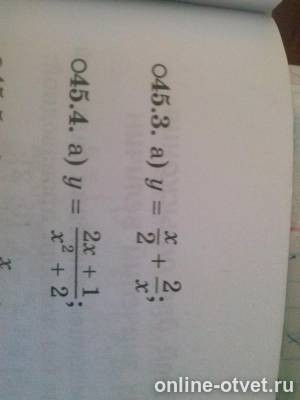 O45.3. а) y = x/2 + 2/x;
O45.4. а) y = (2x + 1)/(x² + 2);
x
online-otvet.ru